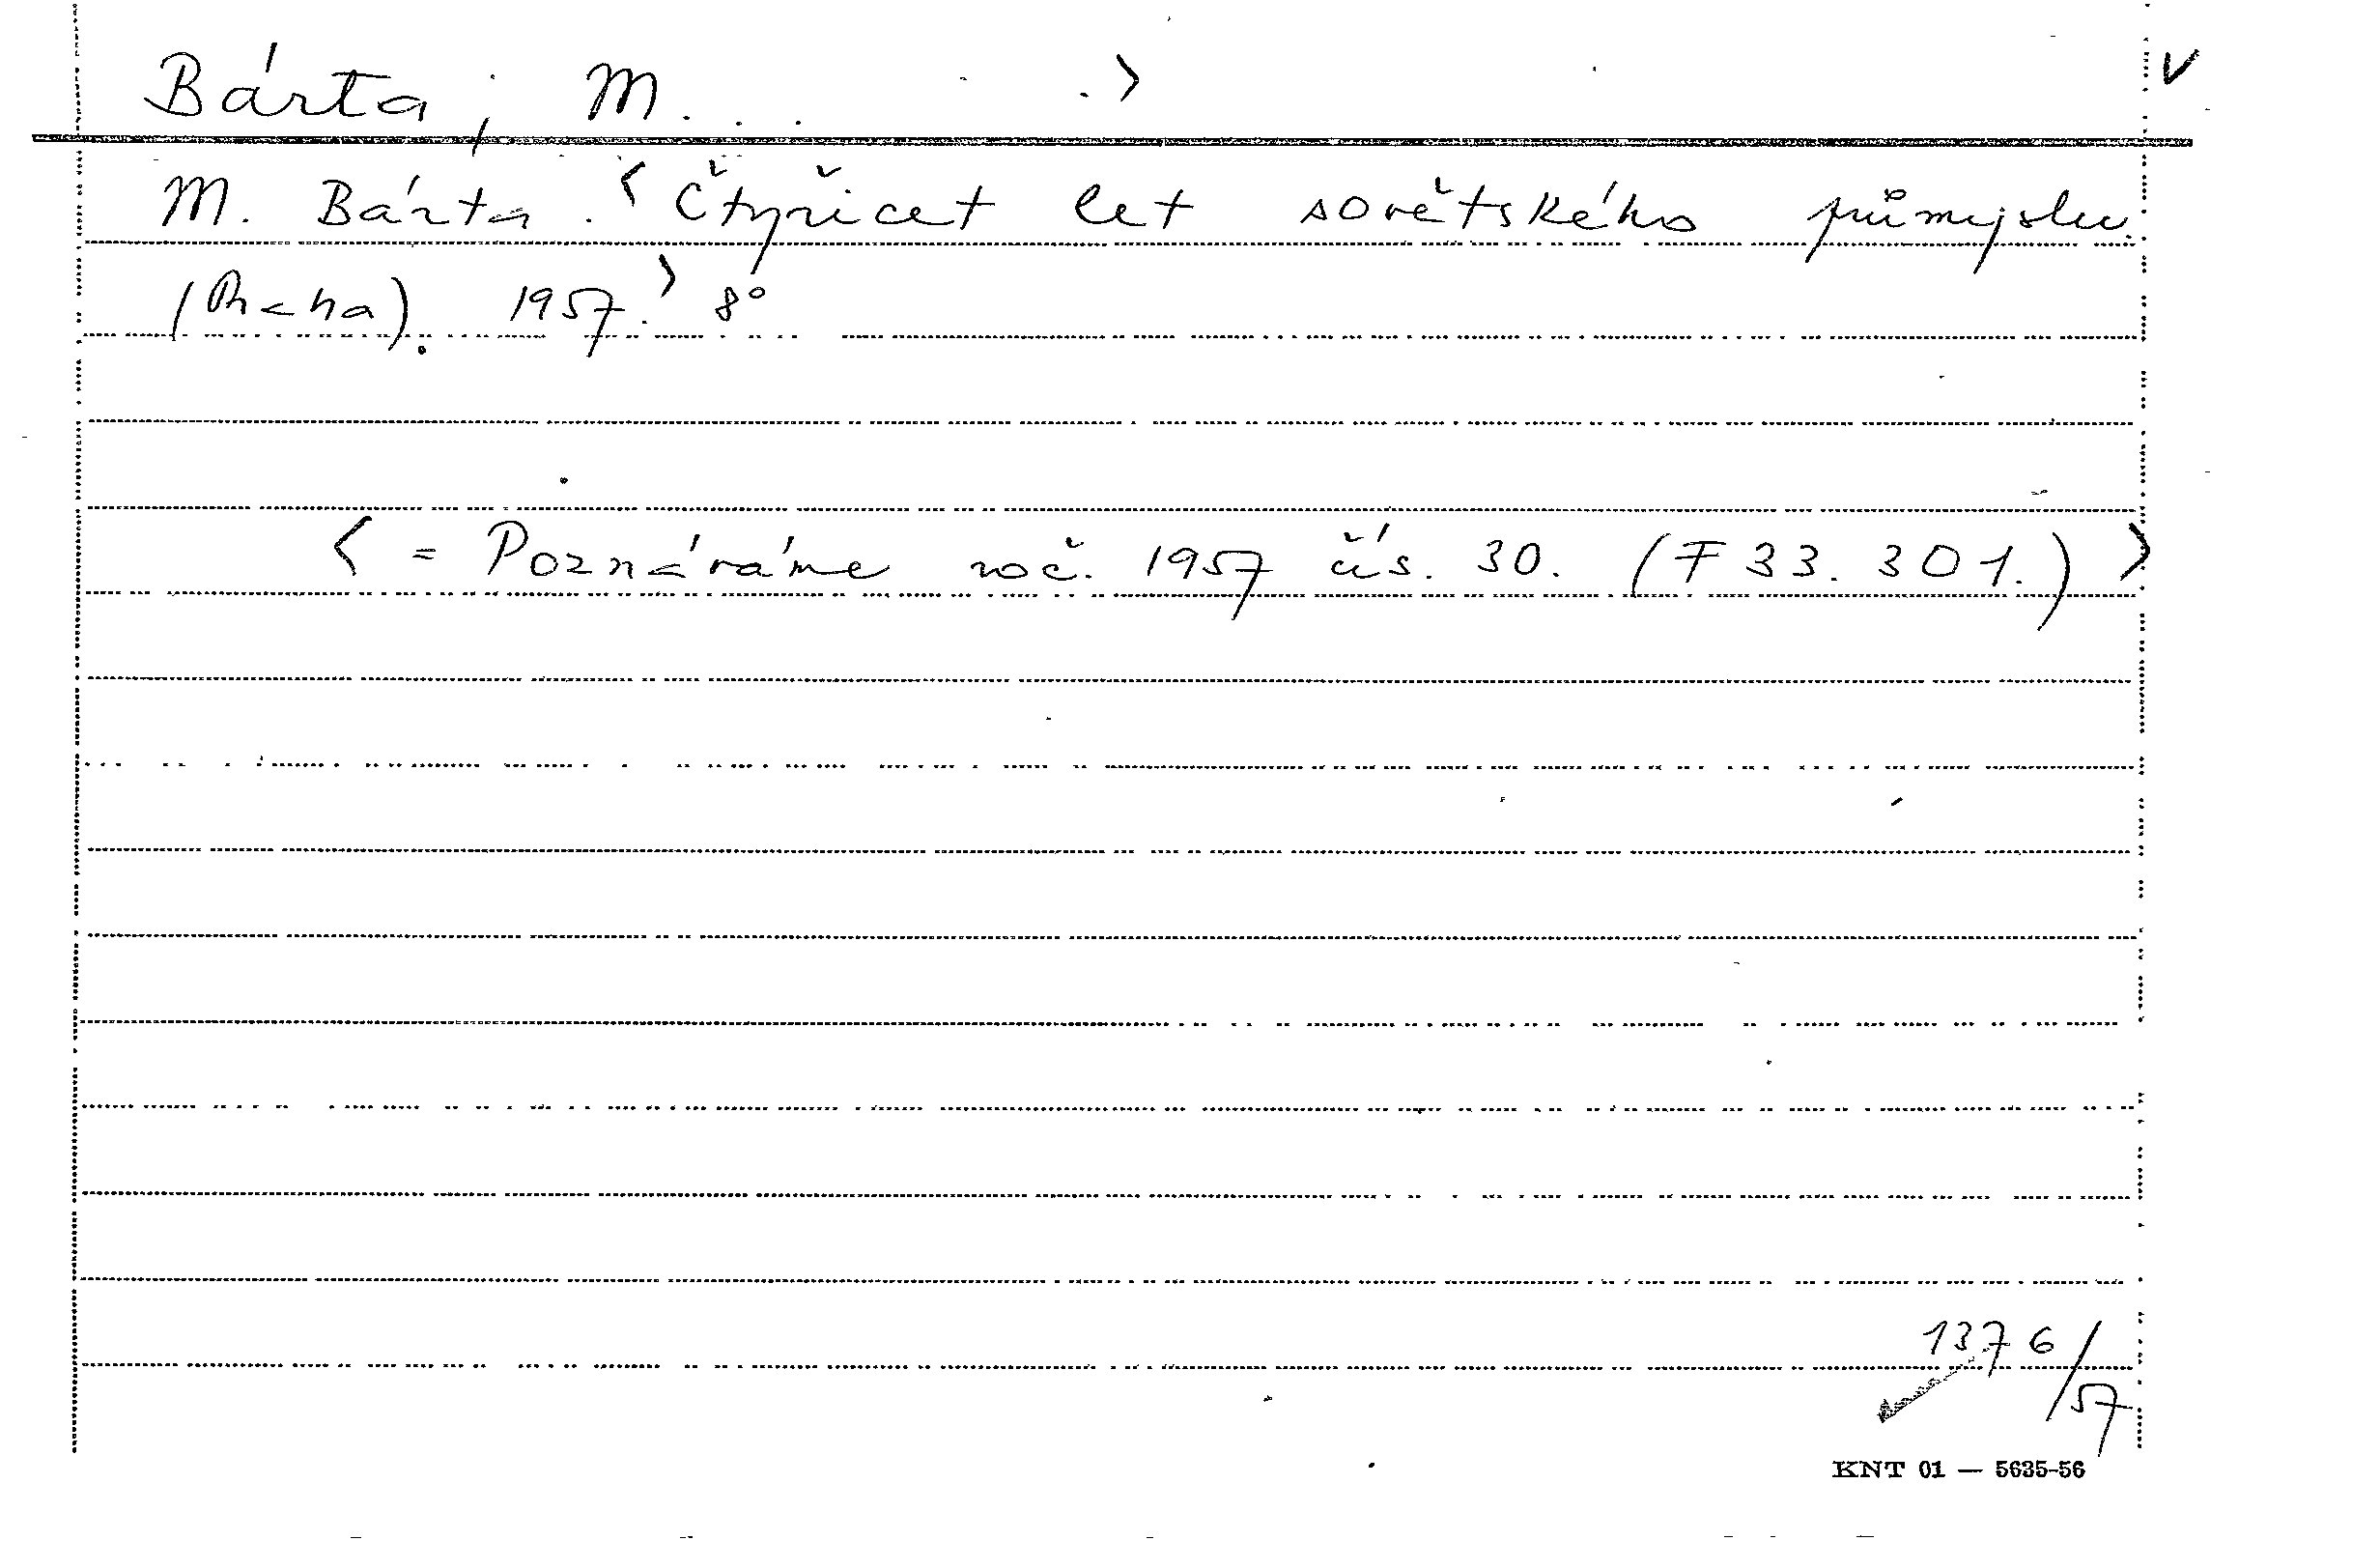 Bárta, M. . . .> v
M. Bárta. <Čtyřicet let sovětského průmyslu.
(Praha). 1957.> 8°
< = Poznáváme roč. 1957 čís. 30. (F 33.301.) >
1376/57
KNT 01 — 5635-56